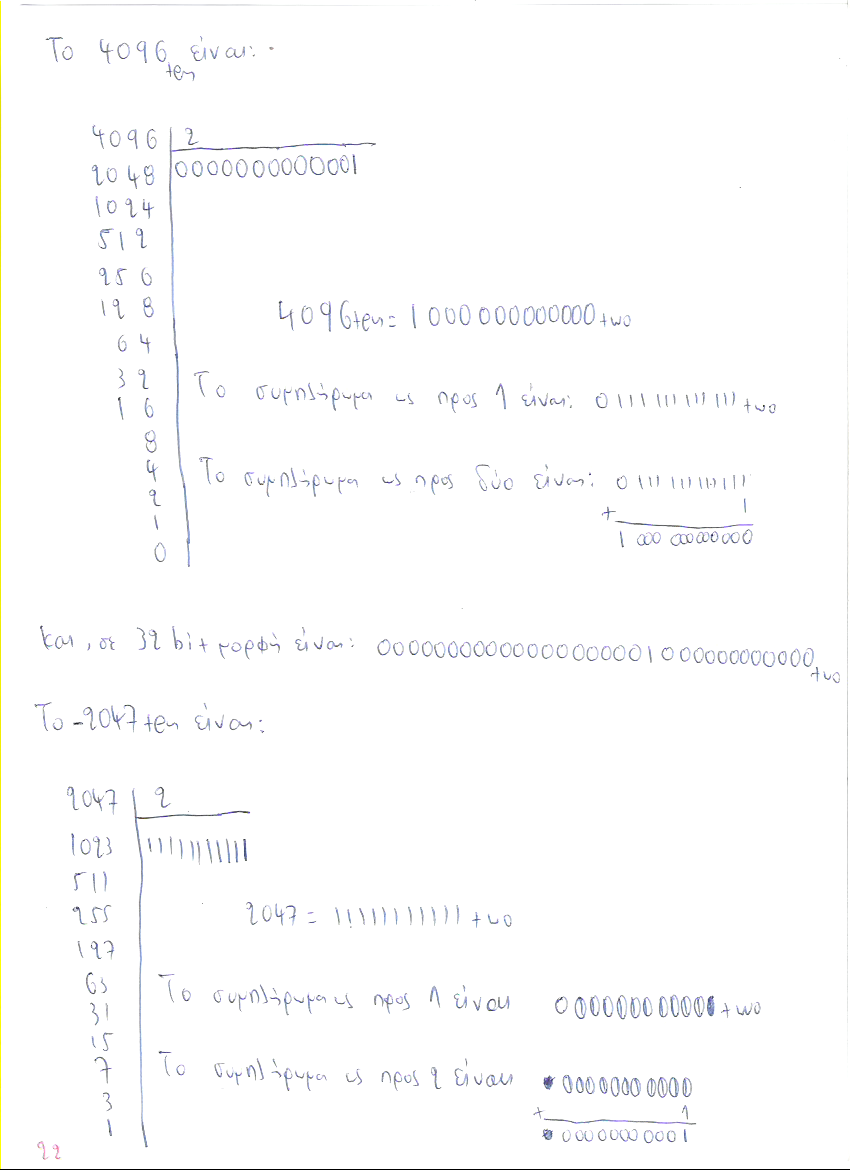 Το 4096ten είναι:-
4096 | 2
2048 0000000000001
1024
512
256
128
4096ten = 1000000000000two
64
32
Το συμπλήρωμα ως προς 1 είναι: 0111111111111two
16
8
Το συμπλήρωμα ως προς δύο είναι: 0111111111111
4
2
+ 1
1
1000000000000
0
και, σε 32 bit μορφή είναι: 00000000000000000001000000000000two
Το -2047ten είναι:
2047 | 2
1023 11111111111
511
255
2047 = 11111111111two
127
63
Το συμπλήρωμα ως προς 1 είναι 00000000000two
31
15
7
Το συμπλήρωμα ως προς 2 είναι 00000000000
3
+ 1
1
00000000001
22